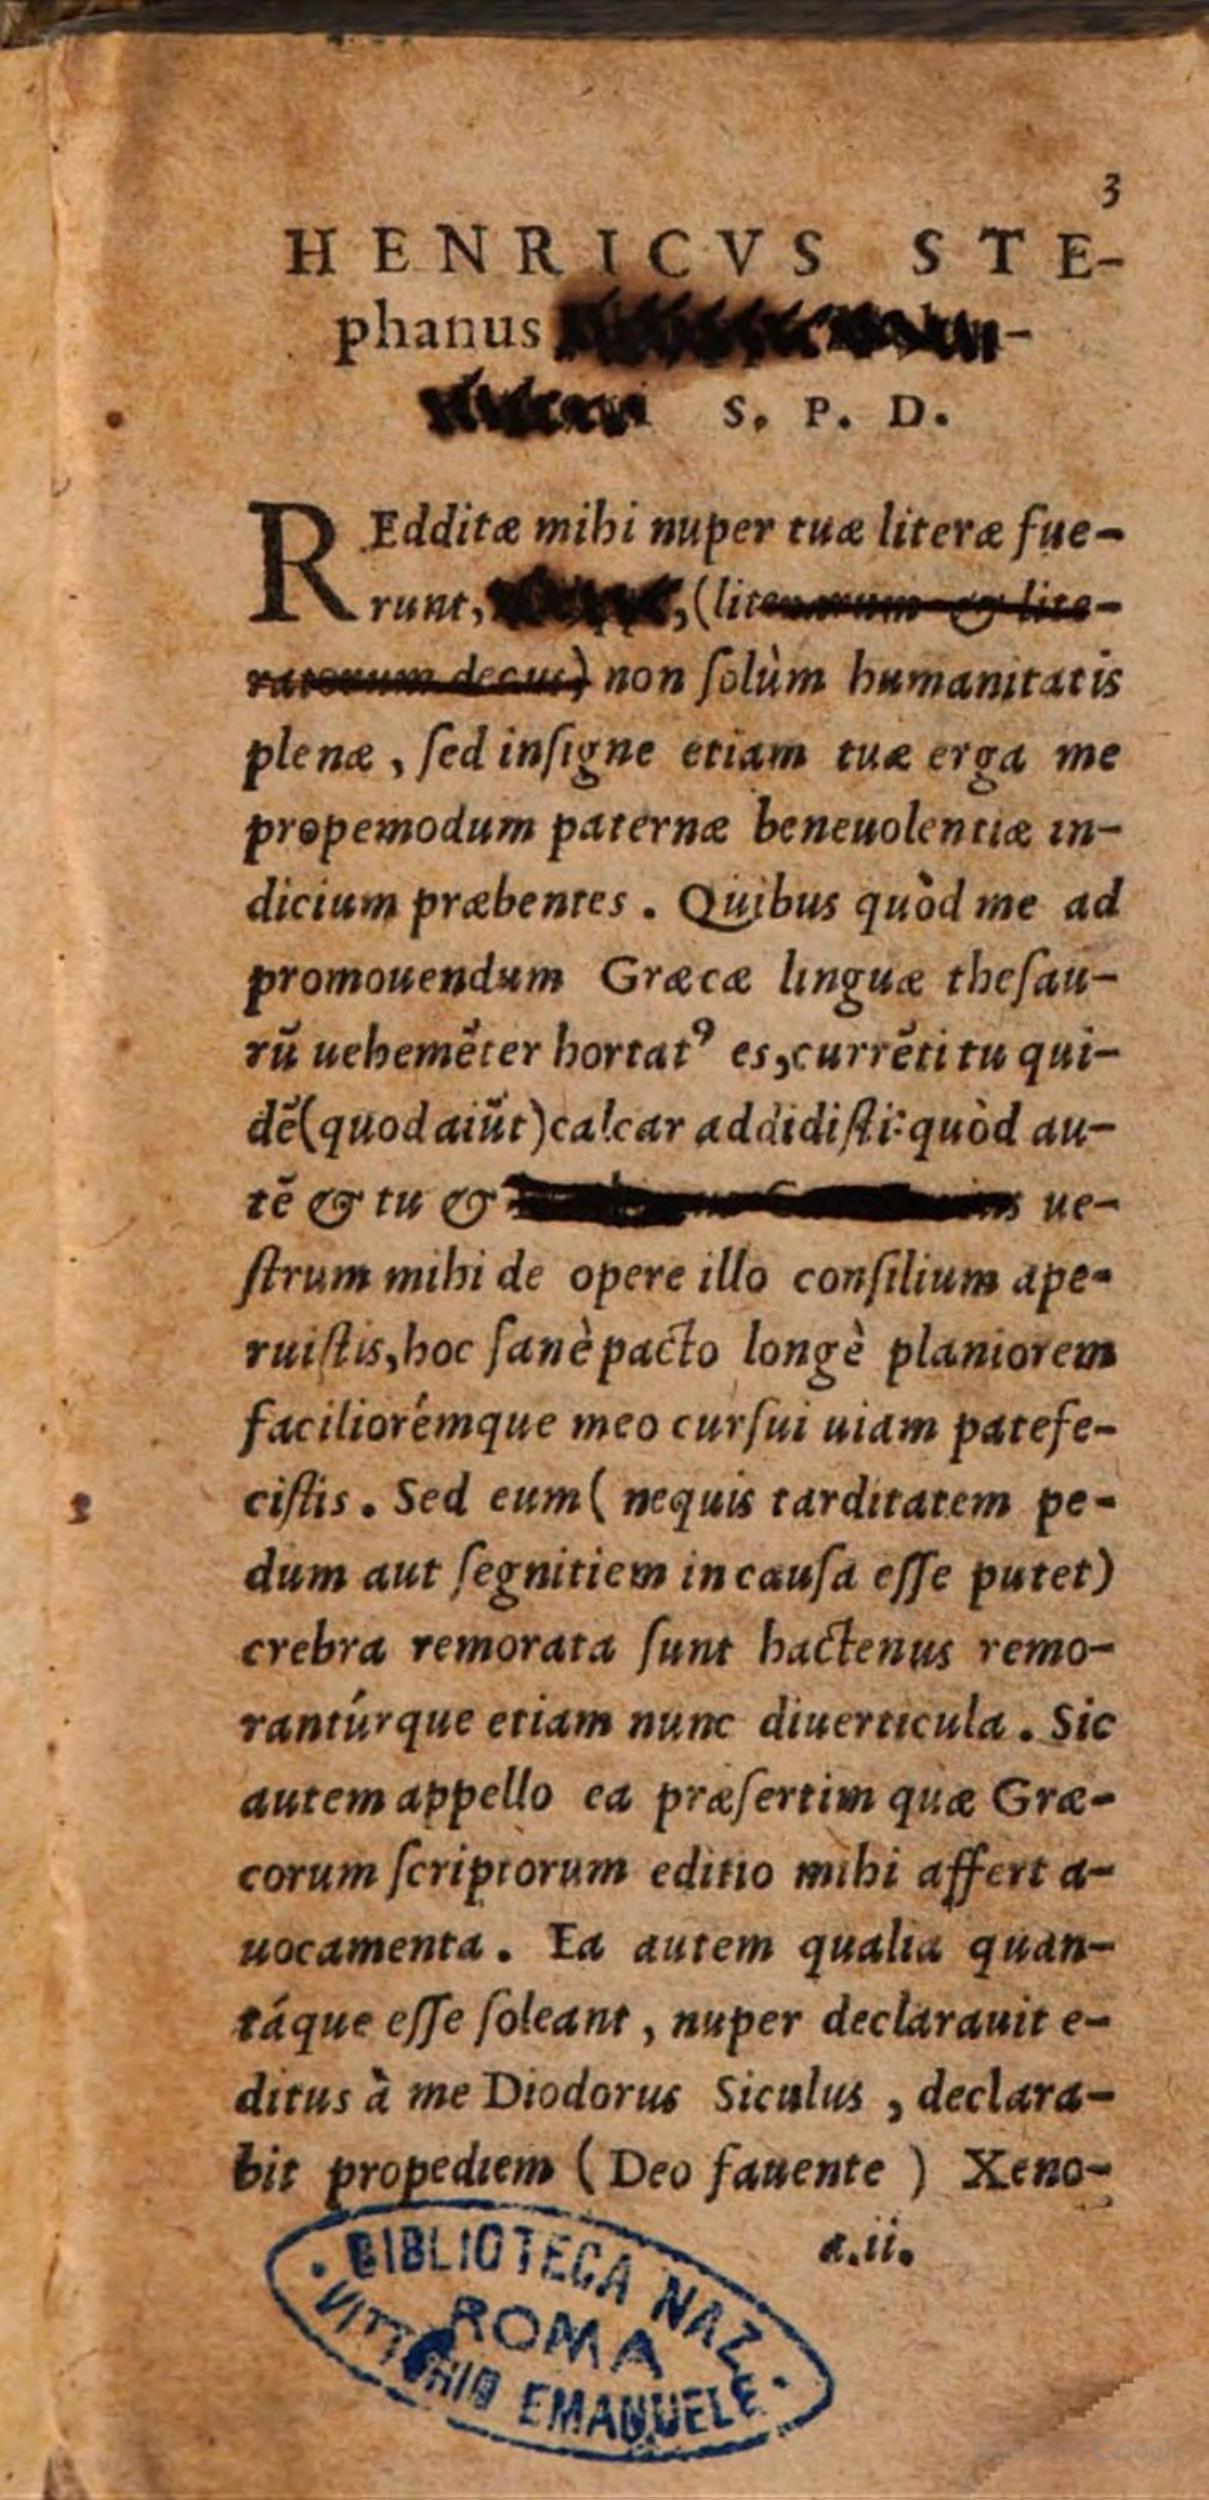 3
HENRICVS STE-
phanus
S. P. D.
REdditæ mihi nuper tuæ literæ fue-
runt, ,(literarum & lite-
ratorum decus) non ſolùm humanitatis
plenæ, ſed inſigne etiam tuæ erga me
propemodum paternæ beneuolentiæ in-
dicium præbentes. Quibus quòd me ad
promouendum Græcæ linguæ theſau-
rũ uehemẽter hortatꝰ es,currẽti tu qui-
dẽ(quod aiũt)calcar addidiſti:quòd au-
tẽ & tu & ue-
ſtrum mihi de opere illo conſilium ape-
ruiſtis,hoc ſanè pacto longè planiorem
faciliorémque meo curſui uiam patefe-
ciſtis. Sed eum( nequis tarditatem pe-
dum aut ſegnitiem in cauſa eſſe putet)
crebra remorata ſunt hactenus remo-
rantúrque etiam nunc diuerticula. Sic
autem appello ea præſertim quæ Græ-
corum ſcriptorum editio mihi affert a-
uocamenta. Ea autem qualia quan-
táque eſſe ſoleant, nuper declarauit e-
ditus à me Diodorus Siculus, declara-
bit propediem (Deo fauente) Xeno-
a.ii.
BIBLIOTECA NAZ.
ROMA
VITTORIO EMANUELE